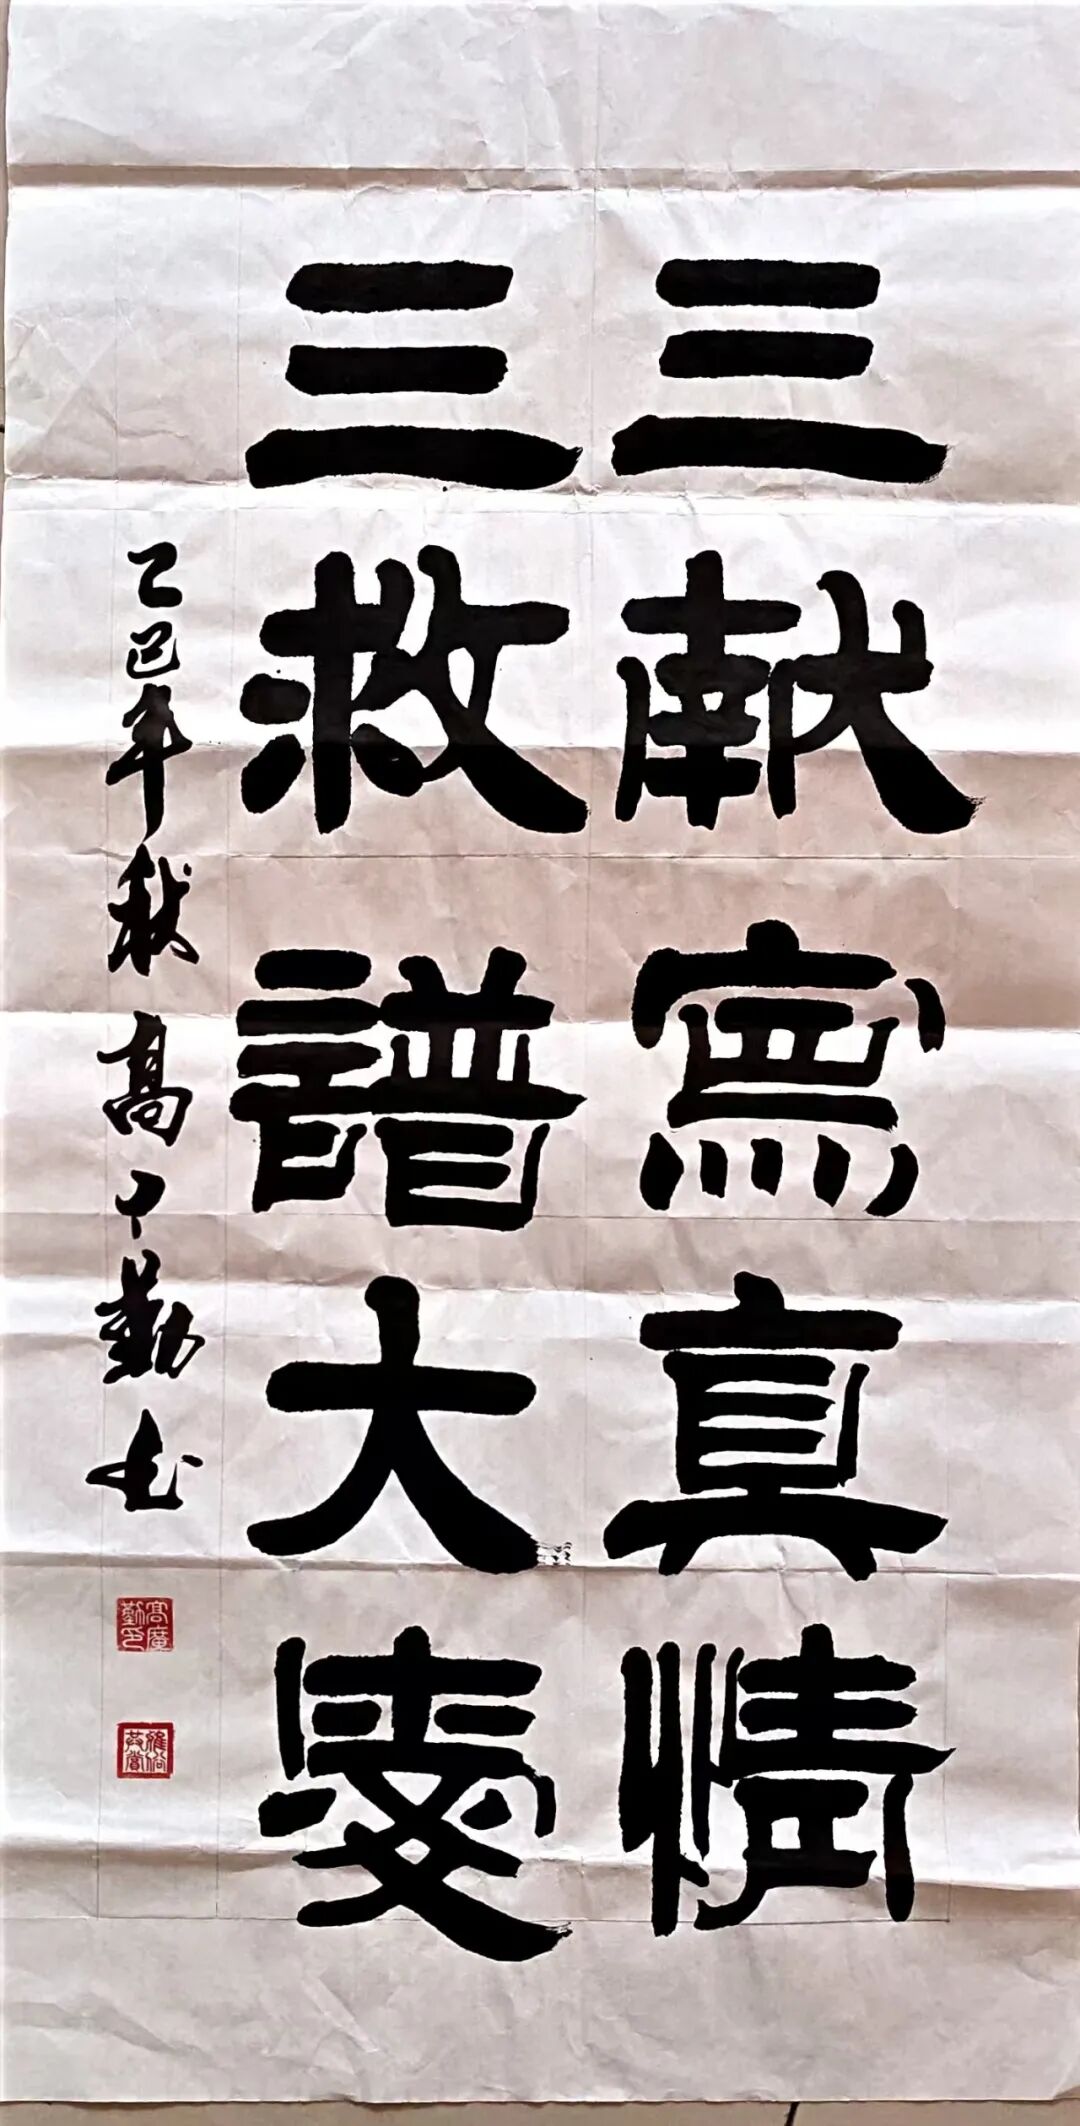 三献寫真情
三救譜大愛
乙巳年秋高广勤书
高廣勤印
雅俗共賞